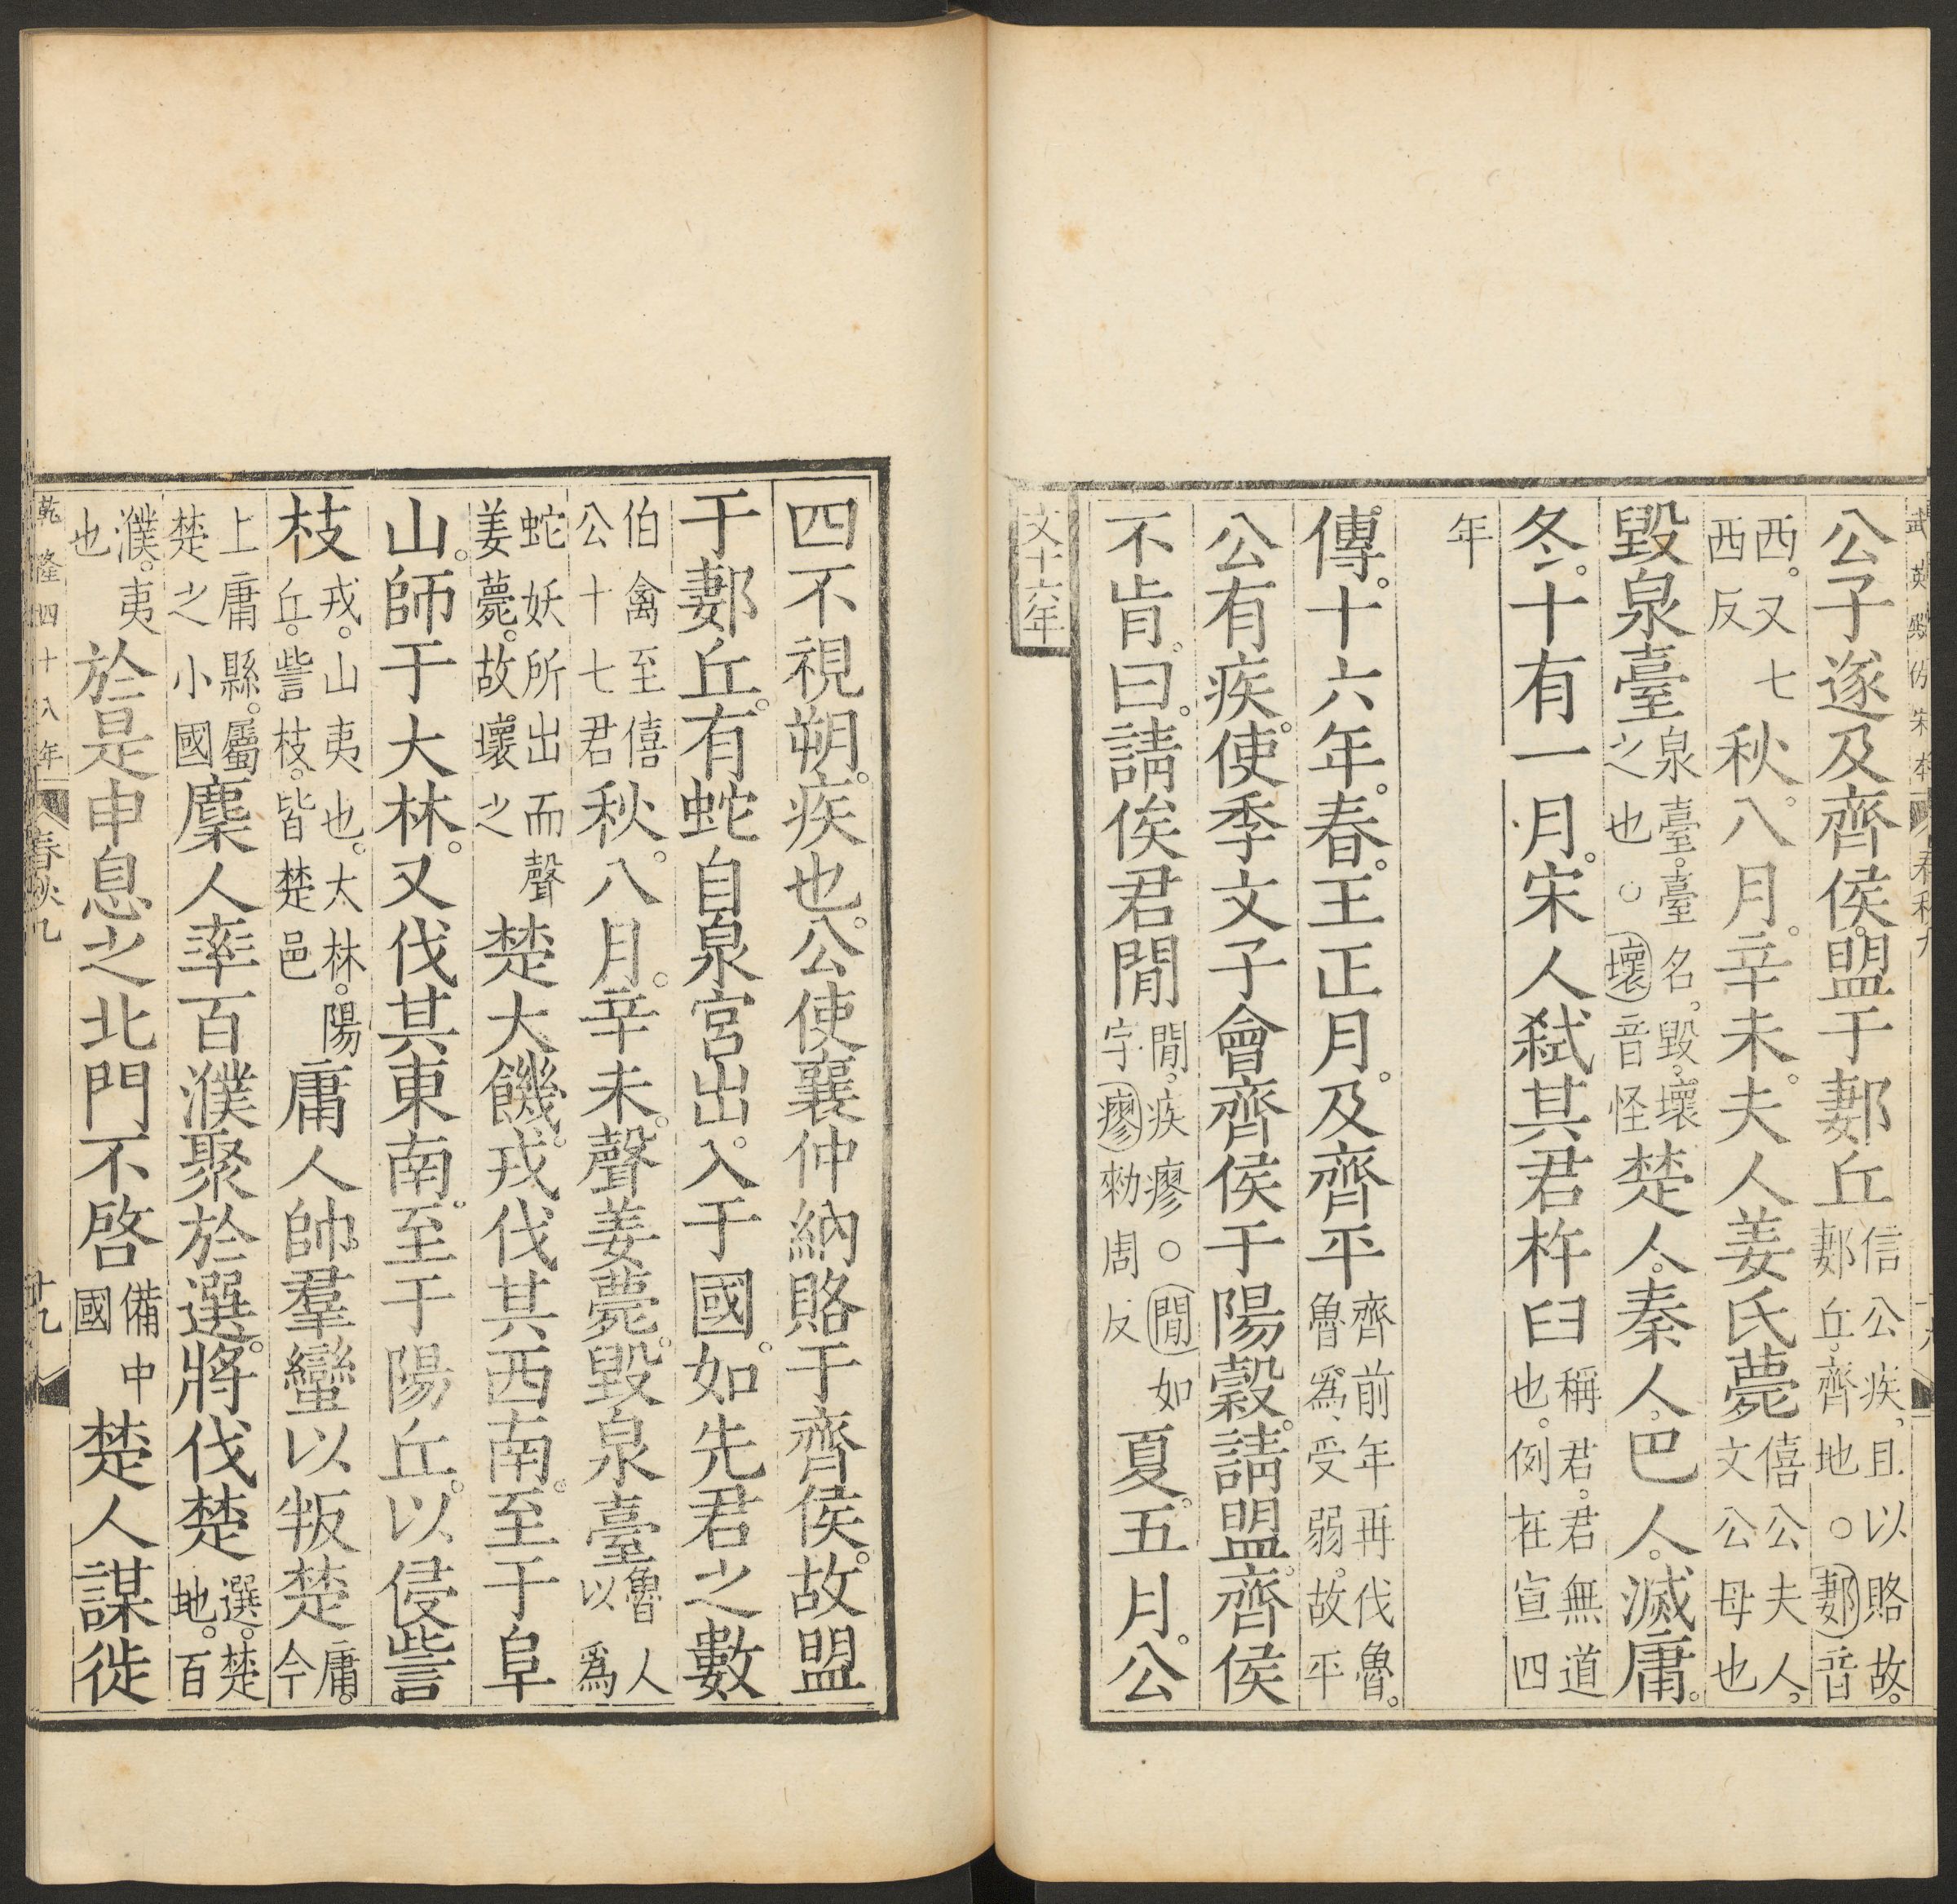 武英殿仿宋本 春秋九
公子遂及齊侯盟于郪丘信公疾且以賂故。郪丘齊地○郪音
西。又七西反秋。八月。辛未。夫人姜氏薨僖公夫人。文公母也
毀泉臺泉臺。臺名。毀。壞之也○壞音怪楚人。秦人。巴人。滅庸。
冬。十有一月。宋人弒其君杵臼稱君。君無道也。例在宣四
年
傳。十六年。春。王正月。及齊平齊前年再伐魯。魯為受弱。故平
公有疾。使季文子會齊侯于陽穀。請盟。齊侯
不肯。曰。請俟君閒閒。疾瘳○閒如字瘳勑周反夏。五月。公
文十六年
四不視朔。疾也。公使襄仲納賂于齊侯。故盟
于郪丘。有蛇自泉宮出。入于國。如先君之數
伯禽至僖公十七君秋。八月。辛未。聲姜薨。毀泉臺魯人以為
蛇妖所出而聲姜薨。故壞之楚大饑。戎伐其西南。至于阜
山。師于大林。又伐其東南。至于陽丘。以侵訾
枝戎。山夷也。大林。陽丘。訾枝。皆楚邑庸人帥羣蠻以叛楚庸。今
上庸縣。屬楚之小國麇人率百濮聚於選。將伐楚選。楚地。百
濮。夷也於是申息之北門不啓備中國楚人謀徙
乾隆四十八年 春秋九 十九